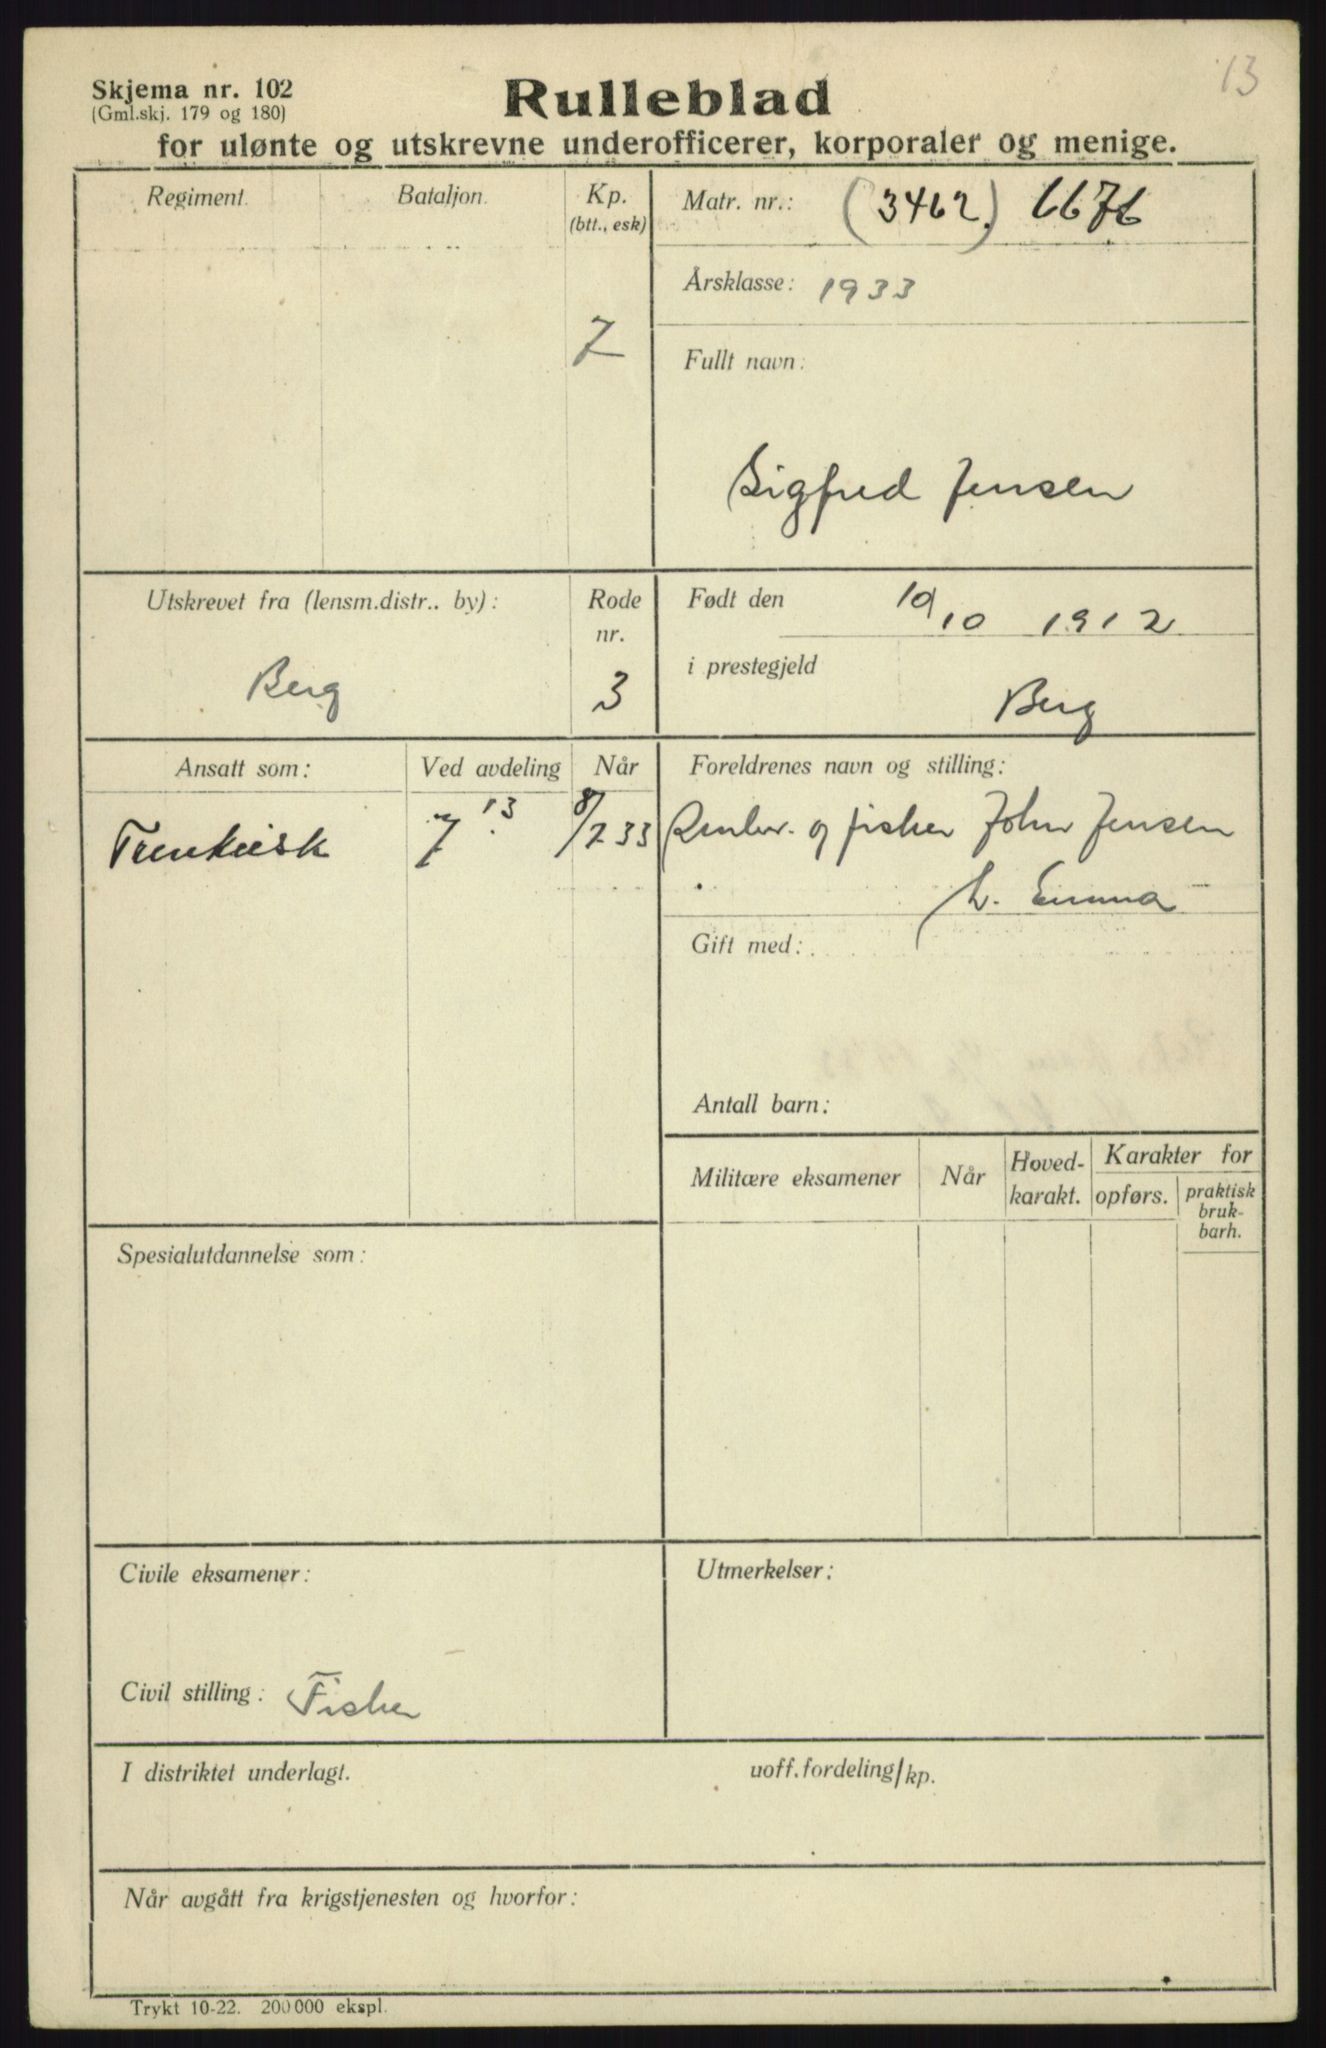 13
Skjema nr. 102
(Gml.skj. 179 og 180)
Rulleblad
for ulønte og utskrevne underofficerer, korporaler og menige.
Regiment.
Bataljon.
Kp.
(btt., esk)
7
Matr. nr.: (3462.) 6676
Årsklasse: 1933
Fullt navn:
Sigfred Jensen
Utskrevet fra (lensm.distr.. by):
Berg
Rode
nr.
3
Født den 10/10 1912
i prestegjeld
Berg
Ansatt som:
Ved avdeling
Når
7 13
8/7 33
Foreldrenes navn og stilling:
og fisker John Jensen
h. Emma
Gift med:
Antall barn:
Militære eksamener
Når
Hoved-
karakt.
Karakter for
opførs.
praktisk
bruk-
barh.
Spesialutdannelse som:
Civile eksamener:
Civil stilling: Fisker
Utmerkelser:
I distriktet underlagt.
uoff. fordeling/kp.
Når avgått fra krigstjenesten og hvorfor:
Trykt 10-22. 200 000 ekspl.